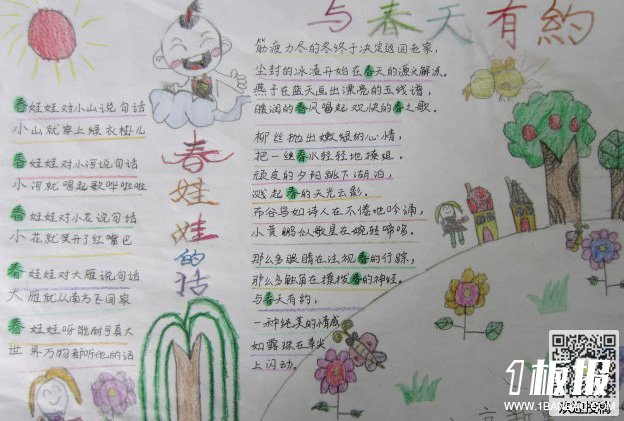 与春天有约
春娃娃的话
春娃娃对小山说句话
小山就穿上绿衣树儿
春娃娃对小河说句话
小河就唱起歌哗啦啦
春娃娃对小花说句话
小花就笑开了红嘴巴
春娃娃对大雁说句话
大雁就从南方飞回家
春娃娃呀能耐可真大
世界万物都听他的话
筋疲力尽的冬终于决定返回老家，
尘封的冰凌开始在春天的源头解冻。
燕子在蓝天画出漂亮的五线谱，
暖润的春风唱起欢快的春之歌。
柳丝抛出嫩绿的心情，
把一丝春水轻轻地撩逗。
顽皮的夕阳跳下湖泊，
溅起春的天光云影。
布谷鸟如诗人在不倦地吟诵，
小黄鹂似歌星在婉转啼鸣。
那么多眼睛在注视春的行踪，
那么多触角在撩拨春的神经。
与春天有约，
一种纯美的情感
如露珠在草尖
上闪动。
1板报
WWW.1BANBAO.COM
欢迎投稿